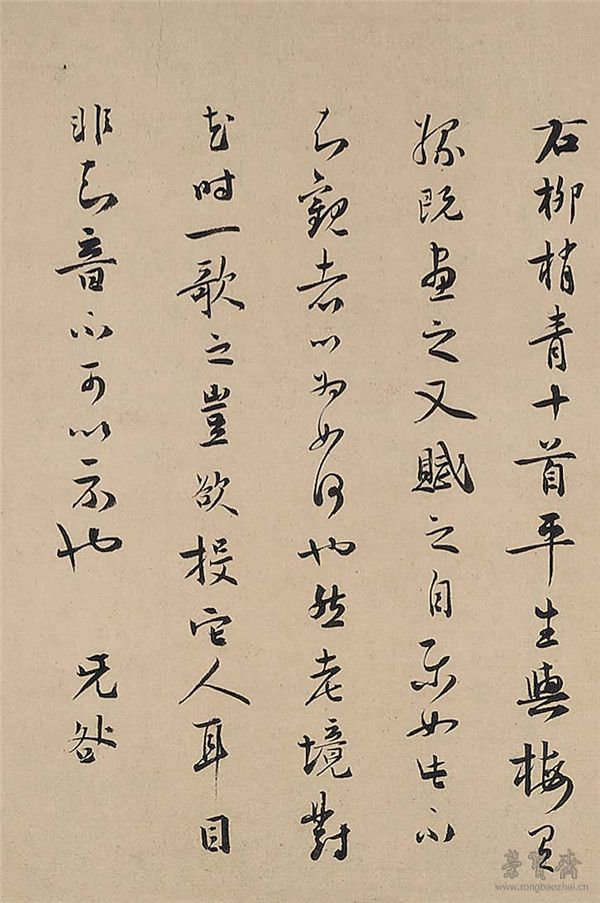 右柳梢青十首平生與梅有
緣既畫之又賦之自樂如此不
知觀者以为如何也然老境對
花时一歌之豈欲投它人耳目
非知音不可以示也 无咎
榮寶齋
www.rongbaozhai.cn